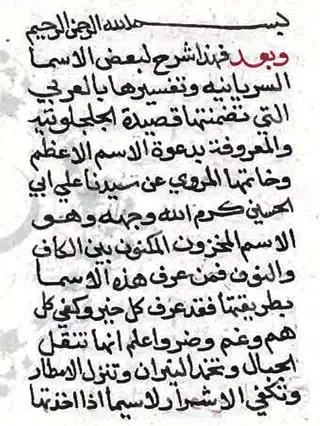 بسم الله الرحمن الرحيم
وبعد فهذا شرح لبعض الاسما
السريانيه وتفسيرها بالعربي
التي تضمنتها قصيدة الجلجلوتيه
والمعروفة بدعوة الاسم الاعظم
وخاتمها المروي عن سيدنا علي ابي
الحسين كرم الله وجهه وهو
الاسم المخزون المكنون بين الكاف
والنون فمن عرف هذه الاسما
بطريقتها فقد عرف كل خير وكفي كل
هم وغم وضر واعلم انها تنقل
الجبال وتخمد النيران وتنزل الامطار
وتكفي الاشرار لاسيما اذا اخذتها